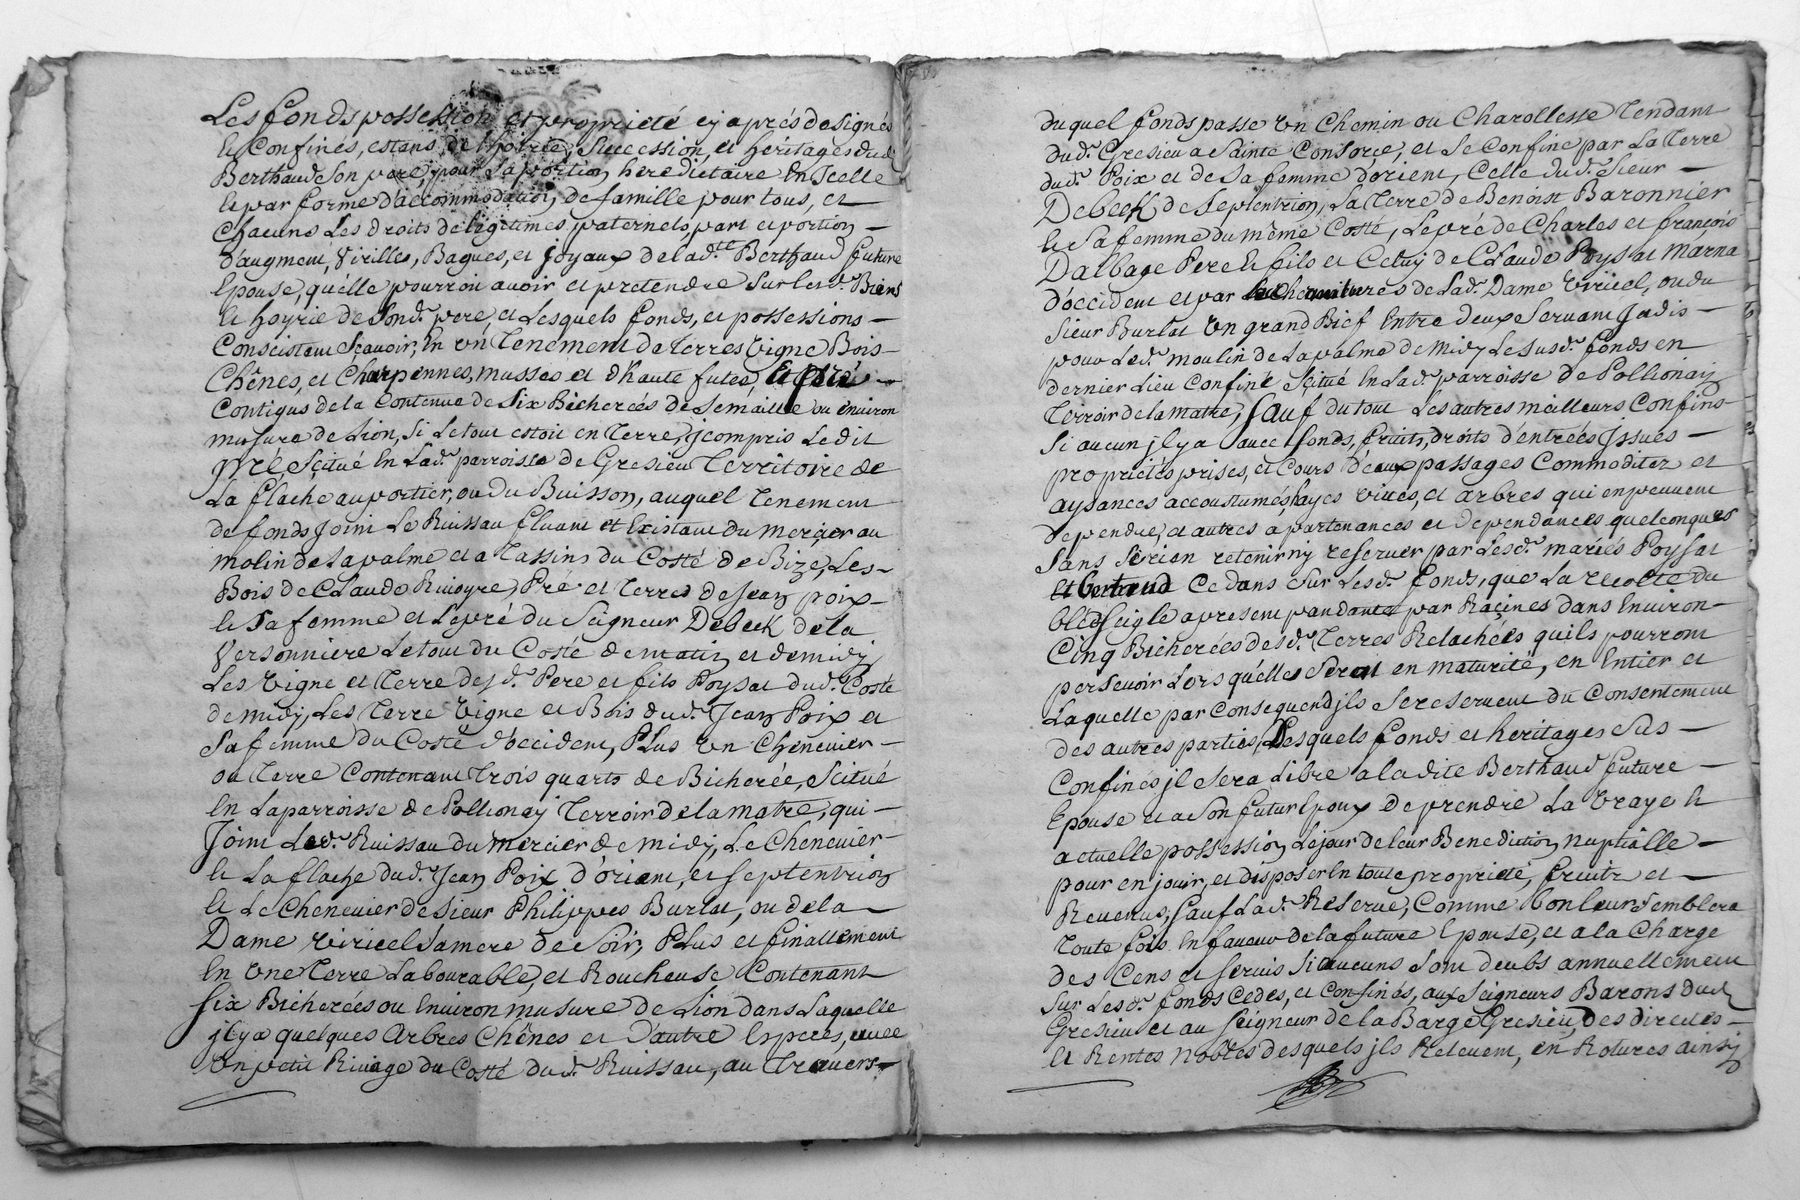 Les fonds possession et propriété cy après désignés
et Confinés, estans de l'hoirie, Succession, et heritages dud.
Berthaud Son pere, pour La portion herediettaire En Icelle
et par forme d'accommodation de famille pour tous, et
Chacuns Les droits de legitimes paternels part et portion —
d'augment, Virilles, Bagues, et Joyaux de lad.tte Berthaud future
Epouse, qu'elle pourroit avoir et pretendre Sur lesd. Biens
et hoyrie de Sond. pere, et Lesquels fonds, et possessions —
Conscistent Sçavoir, En un Tenement de Terres Vigne Bois —
Chênes, et Charpennes, musses et d'haute futes, Et pré —
Contigus de la Contenue de Six Bicherées de Semaille ou environ
musure de Lion, Si Le tout estoit en Terre, y compris Ledit
pré, Sçitué En Lad. parroisse de Gresieu Territoire de
La flache au portier, ou Du Buisson, auquel Tenement
de fonds Joint Le Ruissau fluant et Existant du mercier au
molin de Lapalme et a Tassins du Costé de Bize, Les —
Bois de CLaude Rivoyre, Pré et Terres de Jean poix —
et Sa femme et Le pré du Seigneur Debeck de la
Versonniere Le tout du Costé de matin et de midy
Les Vigne et Terre desd. Pere et fils Poysat dud. Costé
de midy, Les Terre Vigne et Bois dud. Jean Poix et
Sa femme du Costé d'occident, PLus un Chenevier —
ou Terre Contenant Trois quarts de Bicherée, Scitué
En La parroisse de Pollionay Terroir de la matre, qui —
Joint Led. Ruissau du mercier de midy, Le Chenevier —
et La flache dud. Jean Poix d'orient, et septentrion
et Le Chenevier de Sieur Philippes Burlat, ou de la —
Dame Viricel Sa mere de Soir, PLus et finallement
En Une Terre Labourable, et Roucheuse Contenant
six Bicherées ou Environ musure de Lion dans Laquelle
jl y a quelques Arbres Chênes et D'autre Esperes, avec
Un petit Rivage du Costé dud. Ruissau, au Travers —
duquel fonds passe Un Chemin ou Charollesse Tendant
dud. Gresieu a Sainte Consorçe, et Se Confine par La Terre
dud. Poix et de Sa femme d'orient, Celle dud. Sieur —
Debeck de Septentrion, La Terre de Benoist Baronnier
et Sa femme du même Costé, Le pré de Charles et françois
Dalbage Pere et fils et Celuy de CLaude Poysat Marna
d'occident et par Chenevieres de Lad. Dame Viricel, ou du
Sieur Burlat Un grand Bief Entre deux Servant Jadis —
pour Led. moulin de Lapalme de midy Le susd. fonds en
dernier Lieu Confiné Sçitué En Lad. parroisse de Pollionay
Terroir de la matre, Sauf du tout Les autres meilleurs Confins
Si aucun jl y a avec fonds, fruits, droits d'entrées Issues —
propriétés prises, et Cours d'eaux passages Commoditez et
aysances accoustumés, hayes vives, et arbres qui en peuvent
dependre, et autres apartenances et dependances quelconques
Sans S'i rien retenir ny reserver par Lesd. mariés Poysat
et Bertraud Ce dans Sur Lesd. fonds, que La recolte du
bled Seigle a present pandante par Raçines dans Environ —
Cinq Bicherées desd. Terres Relachées quils pourront
persevoir Lors qu'elles Seront en maturité, en Entier et
Laquelle par Consequend jls Se reservent du Consentement
des autres parties, Desquels fonds et heritages Sus —
Confinés jl Sera Libre a ladite Berthaud future —
Epouse et a Son futur Epoux de prendre La Vraye et
actuelle possession Le jour de leur Benediction nuptialle —
pour en jouir, et disposer En toute propriété, fruits et —
Revenus, Sauf Lad. Reserve, Comme bon leur Semblera
Toute fois En faveur de la future Epouse, et a la Charge
des Cens et Servis Si aucuns Sont deubs annuellement
Sur Lesd. fonds Cedés, et Confinés, aux Seigneurs Barons dud.
Gresieu et au Seigneur de la Barge Gresieu, des directes —
et Rentes Nobles desquels jls Relevent, en Rotures ainsy